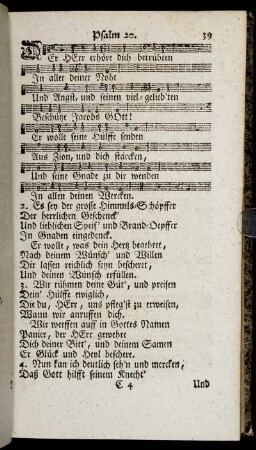 Psalm 20. 39
DEr HErr erhöre dich betrübten
In aller deiner Noht
Und Angst, und seinen viel-gelieb'ten
Beschütze Jacobs GOtt!
Er wolle seine Hülffe senden
Aus Zion, und dich stärcken,
Und seine Gnade zu dir wenden
In allen deinen Wercken.
2. Es sey der große Himmels-Schöpffer
Der herrlichen Geschenck'
Und lieblichen Speis' und Brand-Oepffer
In Gnaden eingedenck.
Er wolle, was dein Hertz begehret,
Nach deinem Wünsch' und Willen
Dir lassen reichlich seyn bescheret,
Und deinen Wünsch erfüllen.
3. Wir rühmen deine Güt', und preisen
Dein' Hülffe ewiglich,
Die du, HErr, uns pfleg'st zu erweisen,
Wann wir anruffen dich.
Wir werffen auff in Gottes Namen
Panier, der HErr gewehre
Dich deiner Bitt', und deinem Samen
Er Glück und Heyl beschere.
4. Nun kan ich deutlich seh'n und mercken,
Daß Gott hilfft seinem Knecht'
C 4 Und